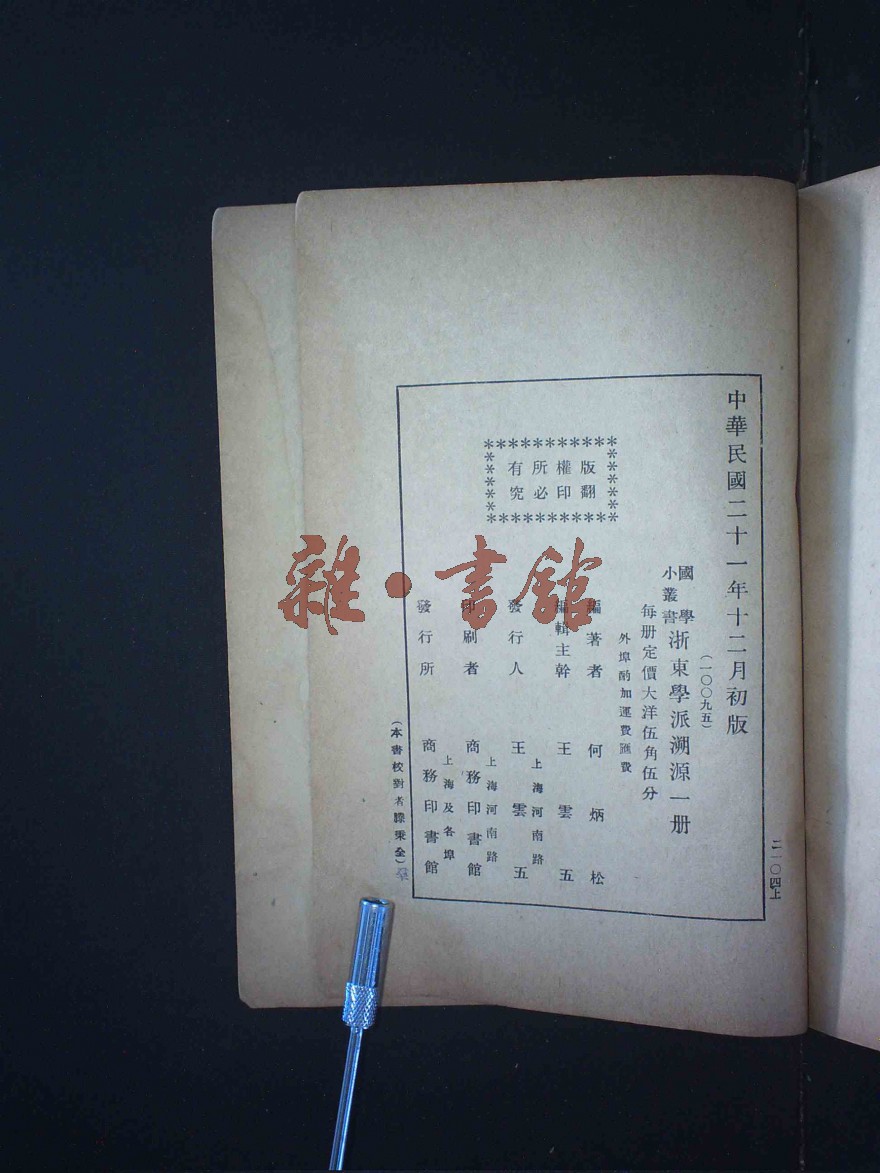 中華民國二十一年十二月初版
二一〇四上
(一〇〇九五)
國學小叢書
浙東學派溯源一册
每册定價大洋伍角伍分
外埠酌加運費匯費
版權所有
翻印必究
編著者 何炳松
編輯主幹 王雲五
上海河南路
發行人 王雲五
上海河南路
印刷者 商務印書館
上海及各埠
發行所 商務印書館
(本書校對者滕秉全)
雜·書館